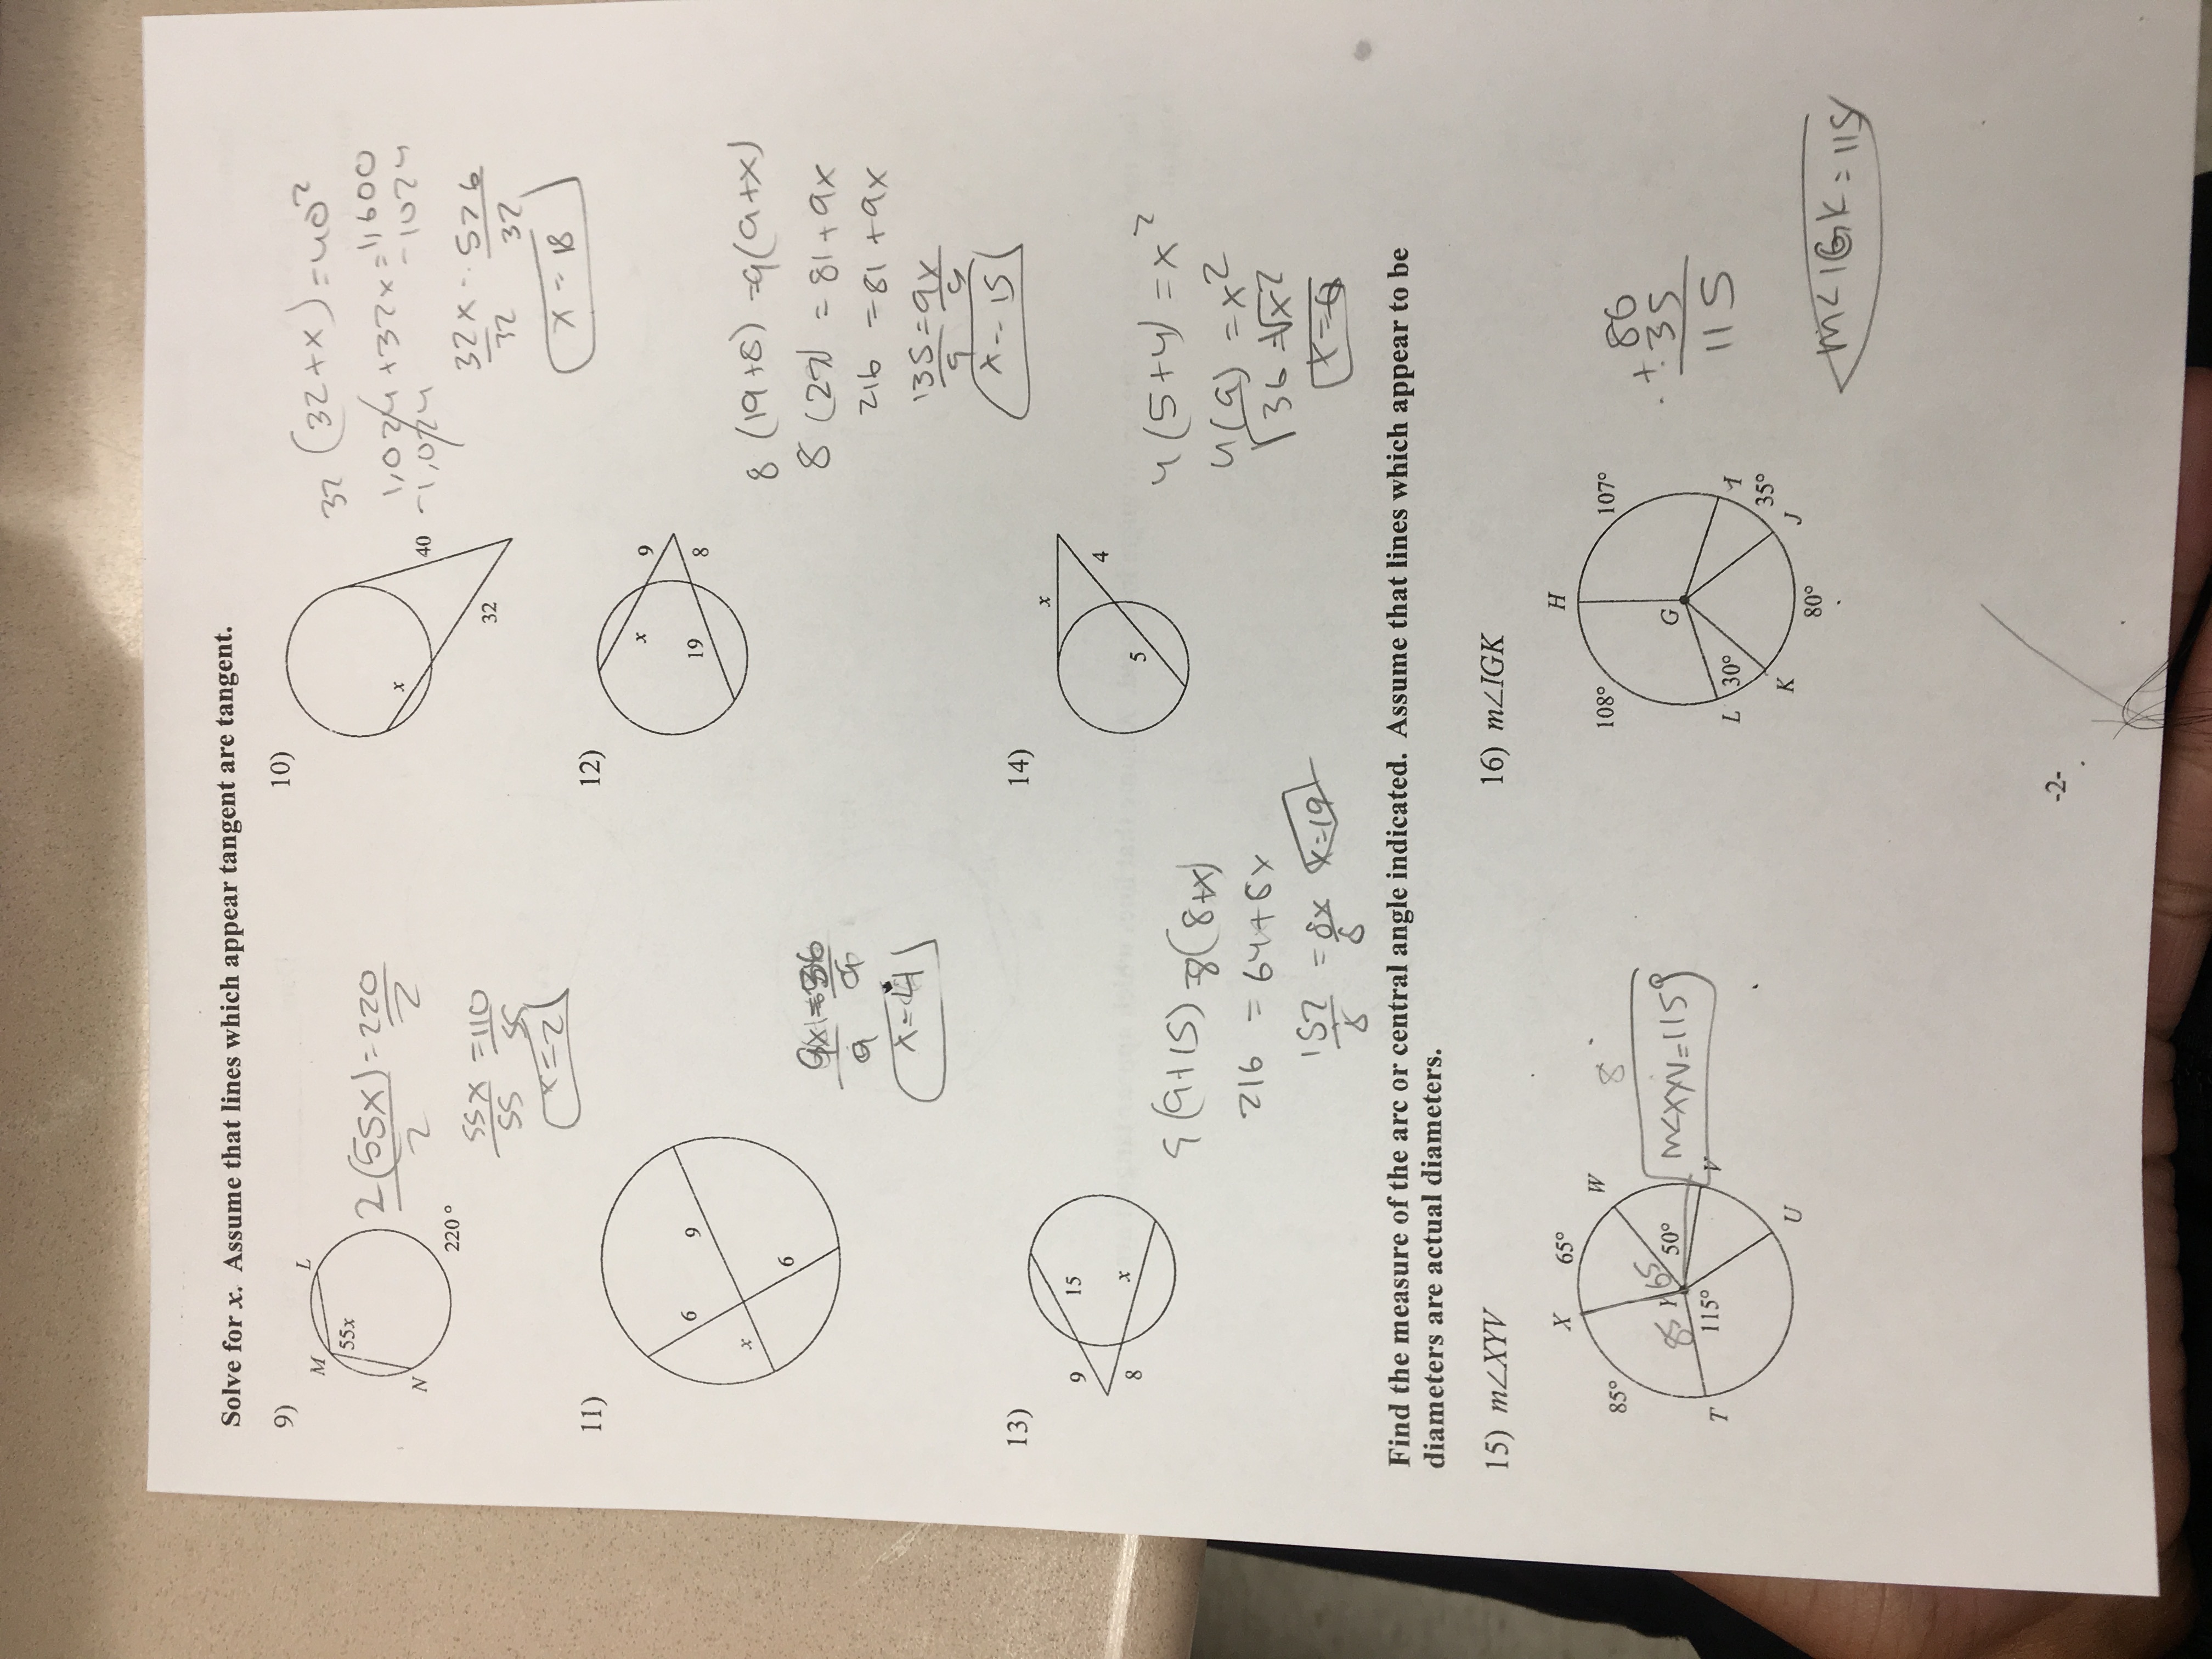 Solve for x. Assume that lines which appear tangent are tangent.
9)
M
L
55x
N
220 °
2(55x)=220
2 2
55x =110
55 55
x=2
10)
x
40
32
32 (32+x)=40²
1,024+32x=1,600
-1,024 -1024
32x = 576
32 32
x = 18
11)
6
9
x
6
9x=36
9 9
x=4
12)
x
9
19
8
8 (19+8) =9(9+x)
8 (27) = 81+9x
216 =81+9x
135=9x
9 9
x = 15
13)
9
15
x
8
9(9+15)=8(8+x)
216 = 64+8x
152 = 8x x=19
8 8
14)
x
4
5
4(5+4) =x²
4(9) =x²
√36 =√x²
x=6
Find the measure of the arc or central angle indicated. Assume that lines which appear to be
diameters are actual diameters.
15) m∠XYV
X
65°
W
85°
85
Y
65
50°
T
115°
V
U
8
m<XYV=115°
16) m∠IGK
H
108°
107°
G
L
30°
I
35°
K
J
80°
80
+ 35
115
m<IGK=115
-2-